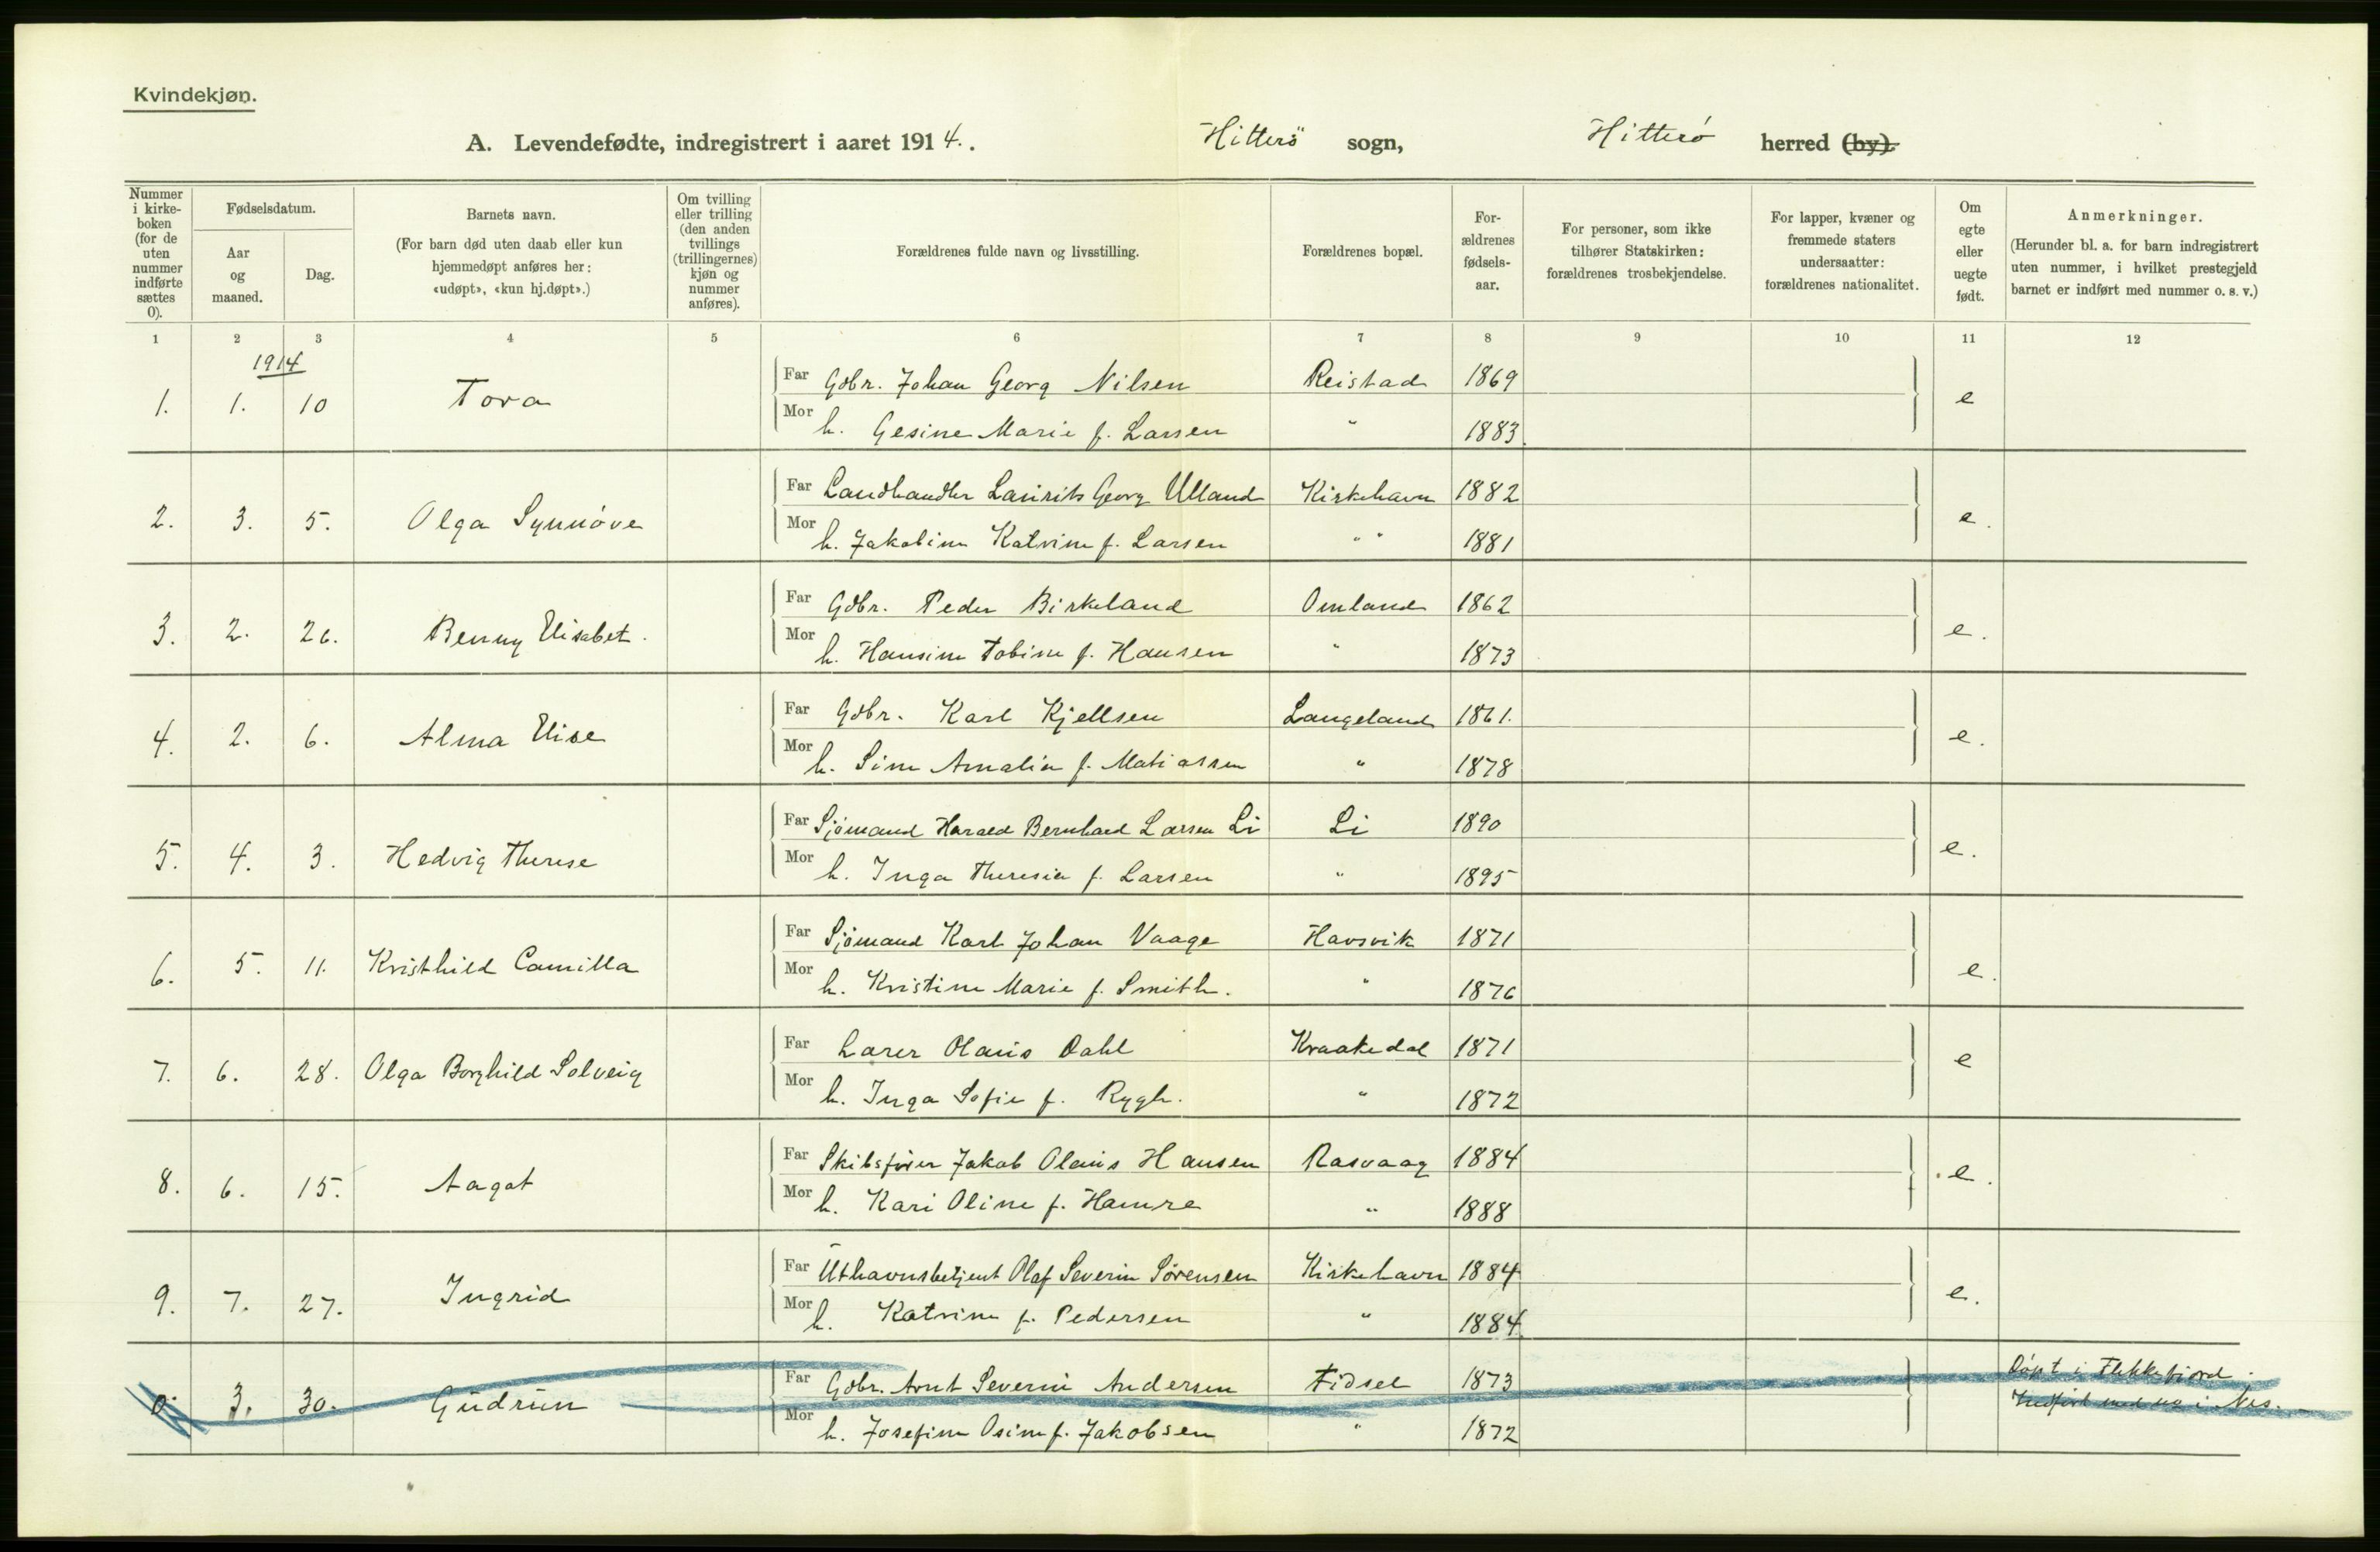 Kvindekjøn.
A. Levendefødte, indregistrert i aaret 1914. . Hitterö sogn, Hitterø herred (by).
Nummer i kirke-boken (for de uten nummer indførte sættes 0).
Fødselsdatum.
Aar og maaned.
Dag.
Barnets navn.
(For barn død uten daab eller kun hjemmedøpt anføres her: «udøpt», «kun hj.døpt».)
Om tvilling eller trilling (den anden tvillings (trillingernes) kjøn og nummer anføres).
Forældrenes fulde navn og livsstilling.
Forældrenes bopæl.
For-ældrenes fødsels-aar.
For personer, som ikke tilhører Statskirken: forældrenes trosbekjendelse.
For lapper, kvæner og fremmede staters undersaatter: forældrenes nationalitet.
Om egte eller uegte født.
Anmerkninger.
(Herunder bl. a. for barn indregistrert uten nummer, i hvilket prestegjeld barnet er indført med nummer o. s. v.)
1 2 3 4 5 6 7 8 9 10 11 12
1914
Far Gdbr. Johan Georg Nilsen Reistad 1869
1. 1. 10 Tora e
Mor h. Gesine Marie f. Larsen " 1883
Far Landhandler Laurits Georg Ulland Kirkehavn 1882
2. 3. 5. Olga Synnøve e.
Mor h. Jakobine Katrine f. Larsen " " 1881
Far Gdbr. Peder Birkeland Omland 1862
3. 2. 26. Benny Elisabet. e.
Mor h. Hansine Tobine f. Hansen " 1873
Far Gdbr. Karl Kjellsen Langeland 1861.
4. 2. 6. Alma Elise e.
Mor h. Sine Amalie f. Matiassen " 1878
Far Sjømand Harald Bernhard Larsen Li Li 1890
5. 4. 3. Hedvig Therese e.
Mor h. Inga Theresia f. Larsen " 1895
Far Sjømand Karl Johan Vaage Havsvik 1871
6. 5. 11. Kristhild Camilla e.
Mor h. Kristine Marie f. Smith. " 1876
Far Lærer Olaus Dahl Kraakedal 1871
7. 6. 28. Olga Borghild Solveig e
Mor h. Inga Sofie f. Rygh. " 1872
Far Skibsfører Jakob Olaus Hansen Rasvaag 1884
8. 6. 15. Aagot e.
Mor h. Kari Oline f. Hamre " 1888
Far Uthavnsbetjent Olaf Severin Sørensen Kirkehavn 1884
9. 7. 27. Ingrid e.
Mor h. Katrine f. Pedersen " 1884
Far Gdbr. Arnt Severin Andersen Fidsel 1873 Døpt i Flekkefjord.
0. 3. 30. Gudrun Indført med no i Nes.
Mor h. Josefine Osine f. Jakobsen " 1872